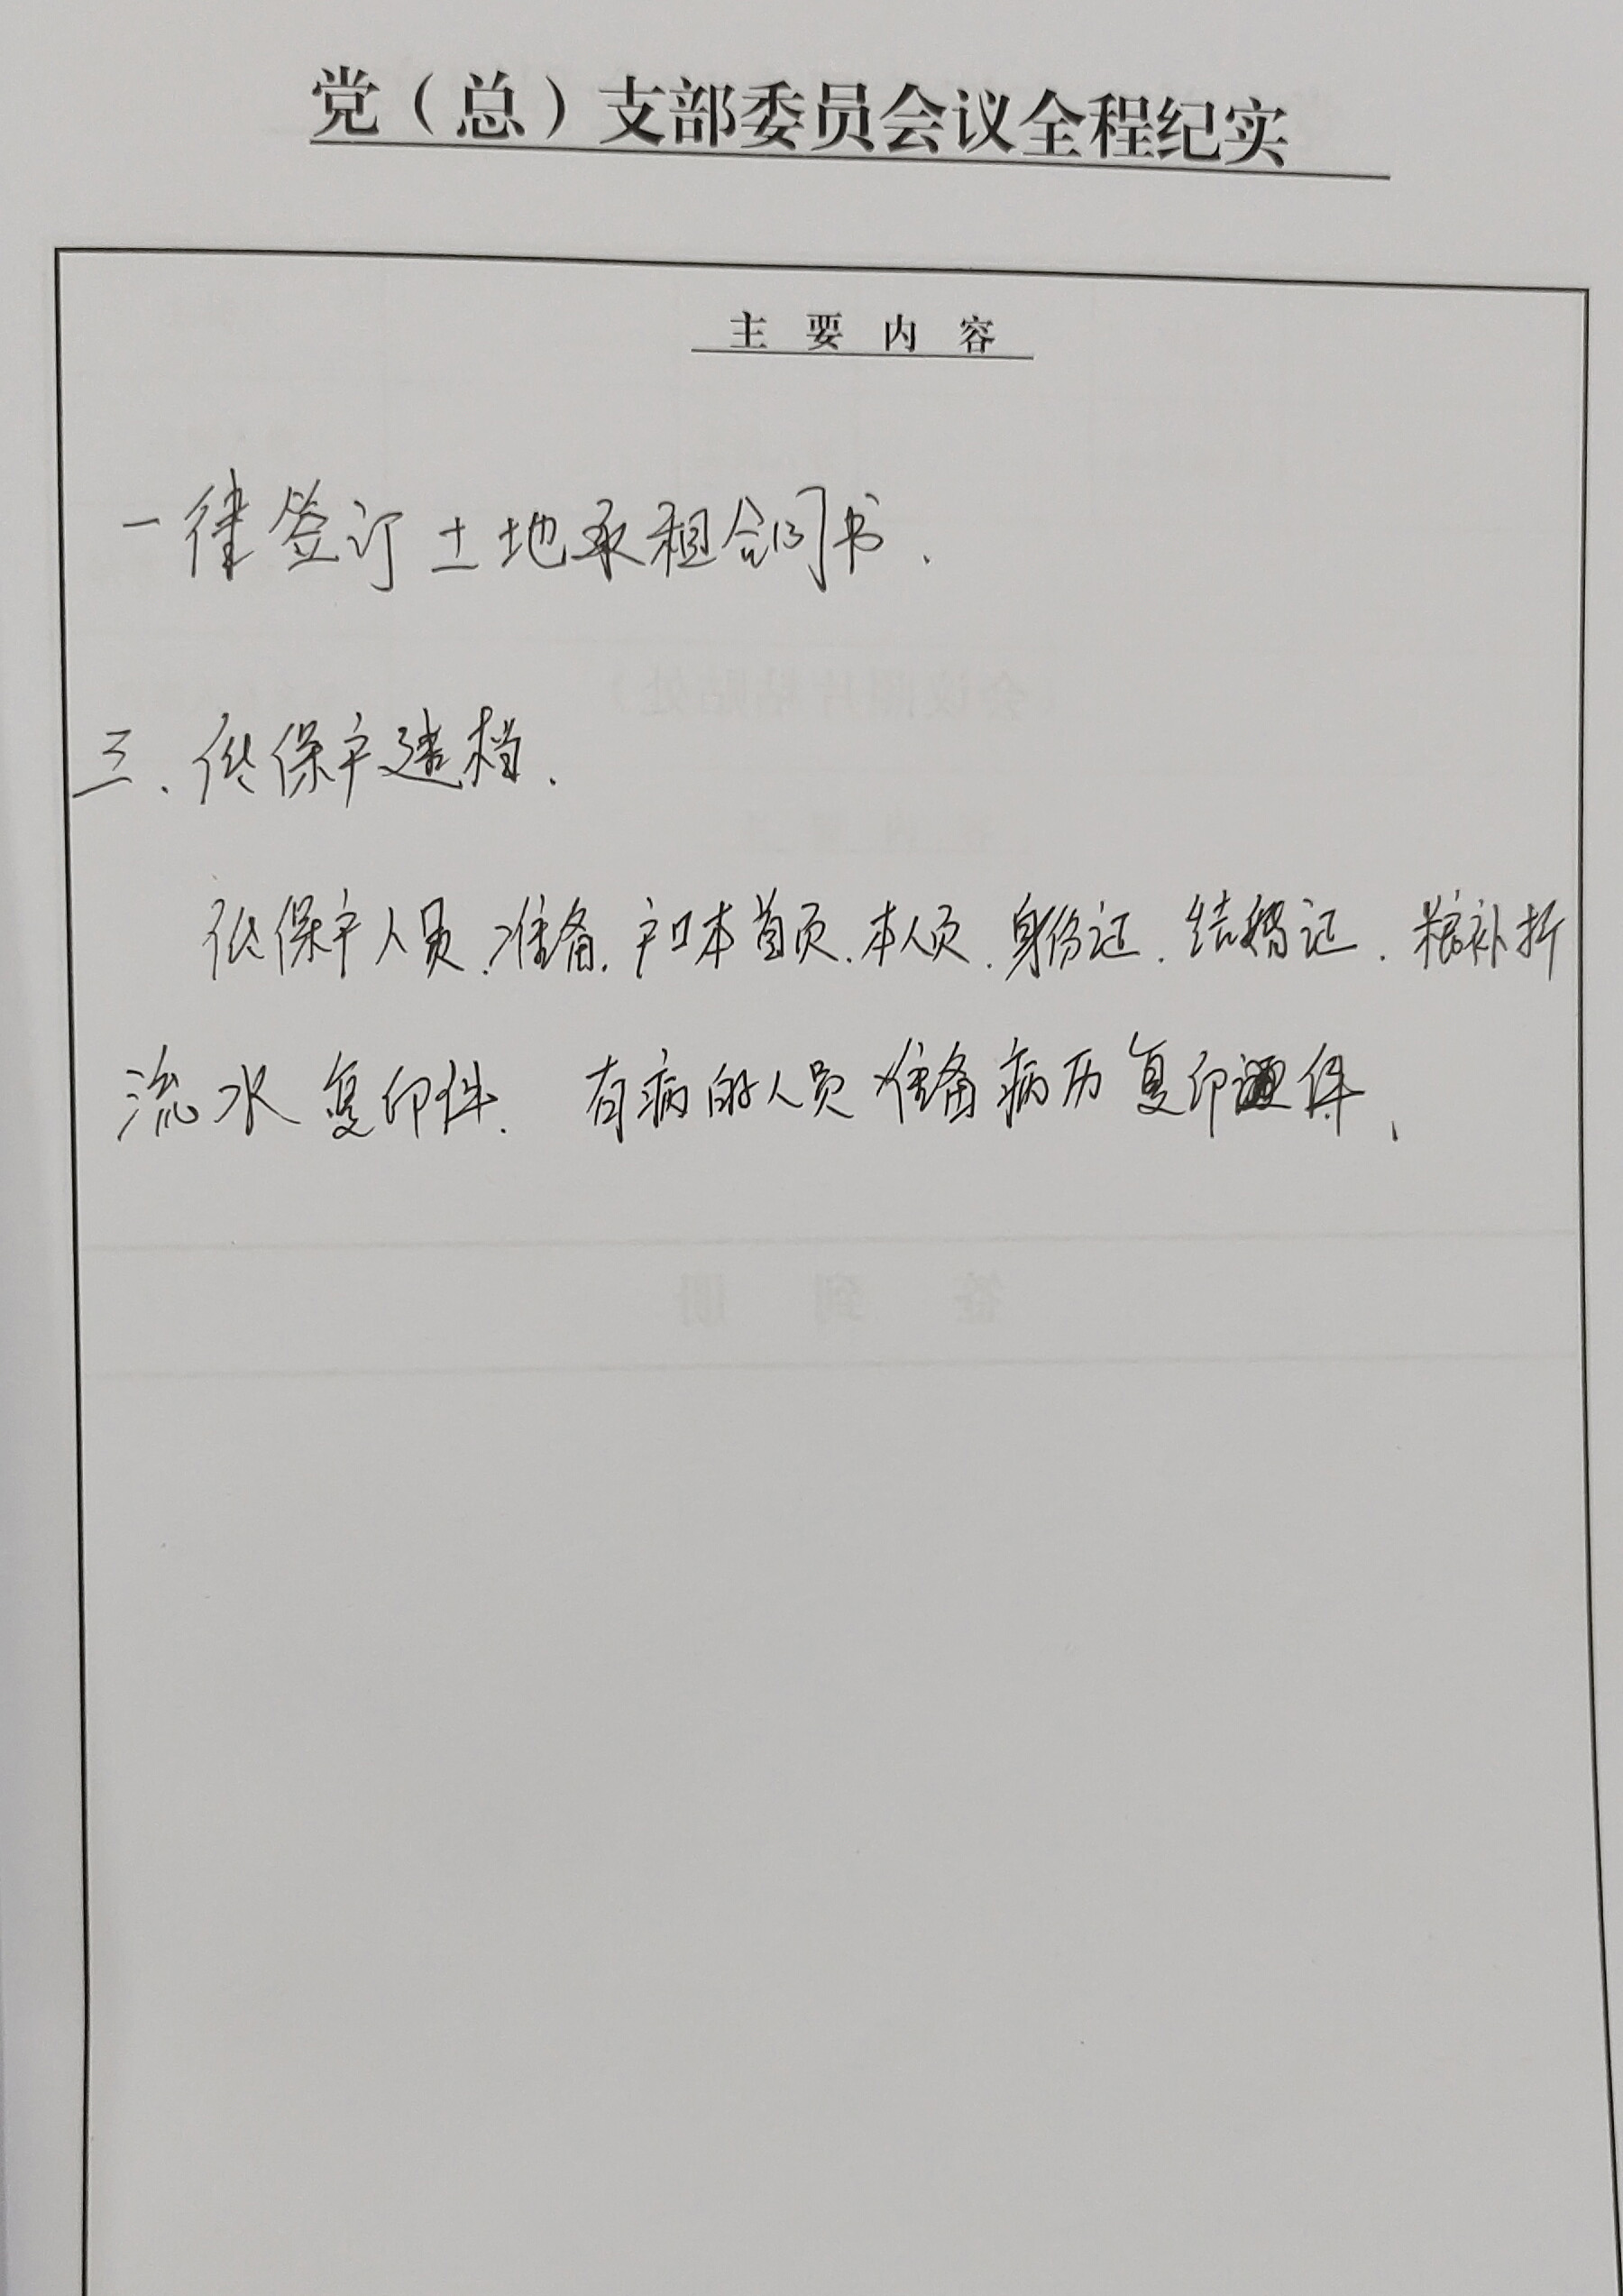 党（总）支部委员会议全程纪实
主要内容
一律签订土地承租合同书.
三、低保户建档.
低保户人员.准备.户口本首页.本人页.身份证.结婚证.粮补折
流水复印件.有病的人员准备病历复印件、
（会议照片粘贴处）
签到册